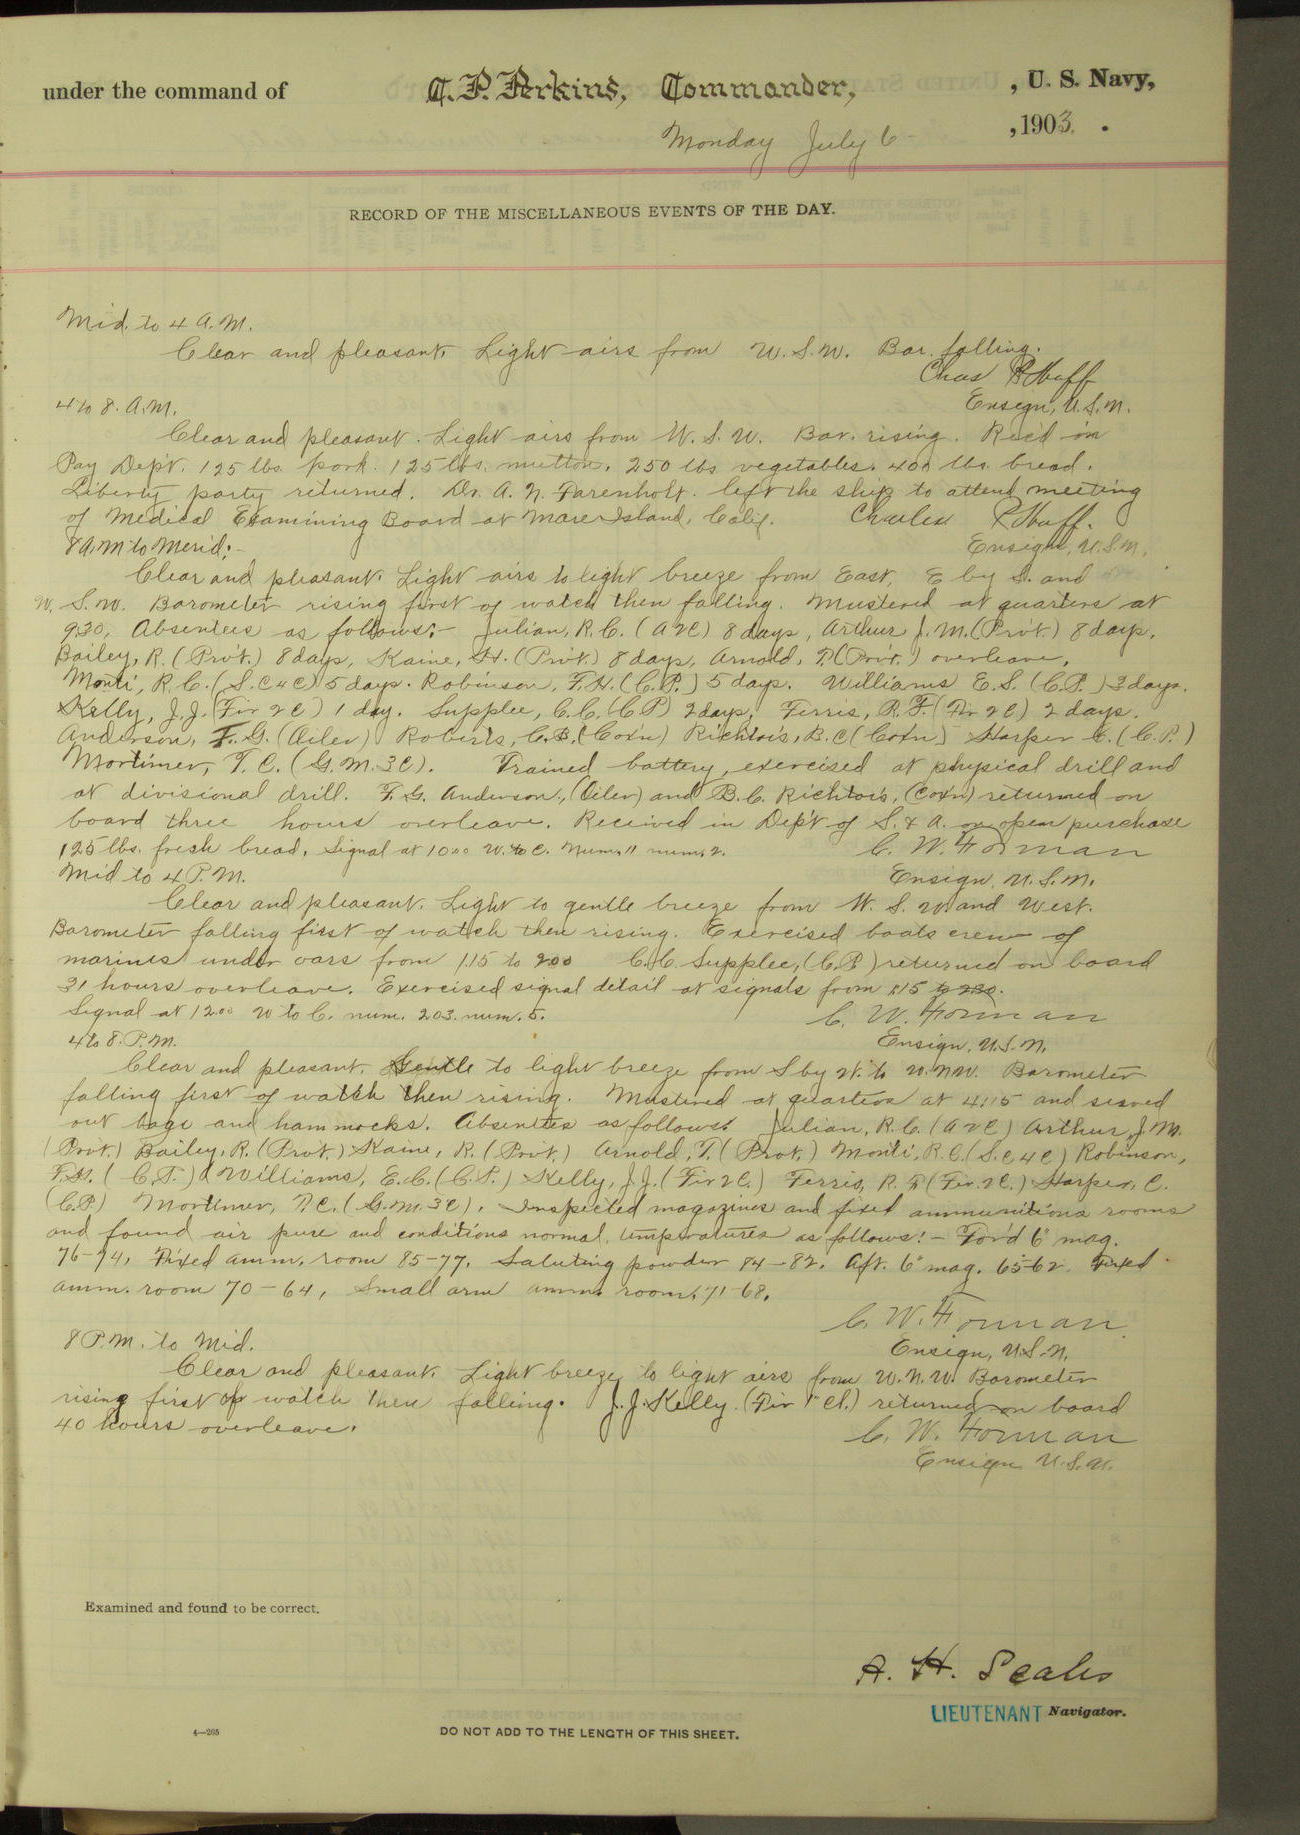 under the command of C. P. Perkins, Commander, , U. S. Navy,
Monday July 6 , 1903 .
RECORD OF THE MISCELLANEOUS EVENTS OF THE DAY.
Mid. to 4 A.M.
Clear and pleasant. Light airs from W.S.W. Bar. falling.
Chas P Huff
Ensign, U.S.N.
4 to 8. A.M.
Clear and pleasant. Light airs from W.S.W. Bar. rising. Rec'd in
Pay Dep't. 125 lbs. pork. 125 lbs. mutton. 250 lbs vegetables. 400 lbs. bread.
Liberty party returned. Dr. A. N. Farenholt. left the ship to attend meeting
of Medical Examining Board at Mare Island, Calif. Charles P Huff.
Ensign, U.S.N.
8 A.M to Merid:-
Clear and pleasant. Light airs to light breeze from East, E by S. and
W. S. W. Barometer rising first of watch then falling. Mustered at quarters at
9.30, Absentees as follows:- Julian, R.C. (A 2C) 8 days, Arthur J.M. (Priv't.) 8 days,
Bailey, R. (Priv't.) 8 days, Kaine, H. (Priv't.) 8 days, Arnold, T. (Priv't.) overleave,
Monti, R.C. (S.C 4 C) 5 days. Robinson, F.H. (C.P.) 5 days. Williams E.S. (C.P.) 3 days.
Kelly, J.J. (Fir 2C) 1 day. Supplee, C.C. (C P) 2 days, Ferris, R.F. (Fir 2C) 2 days.
Anderson, F. G. (Oiler) Roberts, C.B. (Coxn) Richtois, B.C (Coxn) Harper C. (C.P.)
Mortimer, T.C. (G.M. 3C). Trained battery, exercised at physical drill and
at divisional drill. F. G. Anderson, (Oiler) and B.C. Richtois, (Coxn) returned on
board three hours overleave. Received in Dep't of S. & A. on open purchase
125 lbs. fresh bread. Signal at 10.00 W. to C. Num. 11 num. 2.
C. W. Forman
Ensign, U.S.N.
Mid to 4 P.M.
Clear and pleasant. Light to gentle breeze from W. S. W. and West.
Barometer falling first of watch then rising. Exercised boats crew of
marines under oars from 1.15 to 2.00 C.C. Supplee, (C.P) returned on board
31 hours overleave. Exercised signal detail at signals from 1.15 to 2.30.
Signal at 12.00 W to C. num. 203. num. 5.
C. W. Forman
Ensign, U.S.N.
4 to 8. P.M.
Clear and pleasant. Gentle to light breeze from S by W. to W.N.W. Barometer
falling first of watch then rising. Mustered at quarters at 4.15 and served
out bags and hammocks. Absentees as follows: Julian, R.C. (A 2C) Arthur, J M.
(Priv't.) Bailey, R. (Priv't.) Kaine, R. (Priv't.) Arnold, T. (Priv't.) Monti, R.C. (S.C 4 C) Robinson,
F.H. (C.P.) Williams, E.C. (C.P.) Kelly, J.J. (Fir 2C.) Ferris, R. F (Fir. 2C.) Harper, C.
(C.P) Mortimer, T.C. (G.M. 3C). Inspected magazines and fixed ammunitions rooms
and found air pure and conditions normal, temperatures as follows:- For'd 6" mag.
76-74, Fixed amm. room 85-77. Saluting powder 84-82. Aft. 6" mag. 65-62 Fixed
amm. room 70-64, Small arm amm. room, 71-68.
C. W. Forman
Ensign, U.S.N.
8 P.M. to Mid.
Clear and pleasant. Light breeze, to light airs from W.N.W. Barometer
rising first of watch then falling. J.J. Kelly (Fir 1" Cl.) returned on board
40 hours overleave.
C. W. Forman
Ensign U.S.N.
Examined and found to be correct.
A. H. Scales
LIEUTENANT Navigator.
4—265
DO NOT ADD TO THE LENGTH OF THIS SHEET.